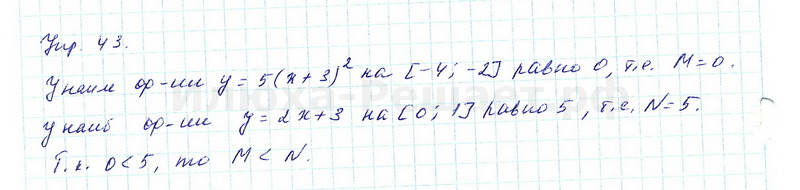 Упр. 43.
Унаим ф-ии y = 5(x+3)² на [-4; -2] равно 0, т.е. M=0.
Илюха-Решает.рф
Унаиб ф-ии y = 2x+3 на [0; 1] равно 5, т.е. N=5.
Т.к. 0<5, то M < N.